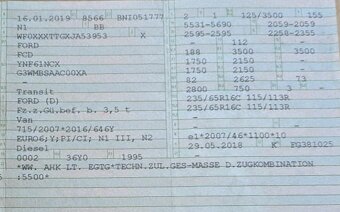 16.01.2019 8566 BNI051777 2 1 125/3500 155
N1 BB 5531-5690 2059-2059
WF0XXXTTGXJA53953 X 2595-2595 2258-2355
- 112 -
FORD 188 3500 3500
FCD 1750 2150 -
YNF61NCX 1750 2150 -
G3WMBSAAC00XA 82 2625 73
- 2800 750 3 -
Transit 235/65R16C 115/113R
FORD (D) 235/65R16C 115/113R
Fz.z.Gü.bef. b. 3,5 t
Van
715/2007*2016/646Y
EURO6;Y;PI/CI; N1 III, N2 e1*2007/46*1100*10
Diesel 29.05.2018 K FG381025
0002 36Y0 1995
*WW. AHK LT. EGTG*TECHN.ZUL.GES-MASSE D.ZUGKOMBINATION
:5500*